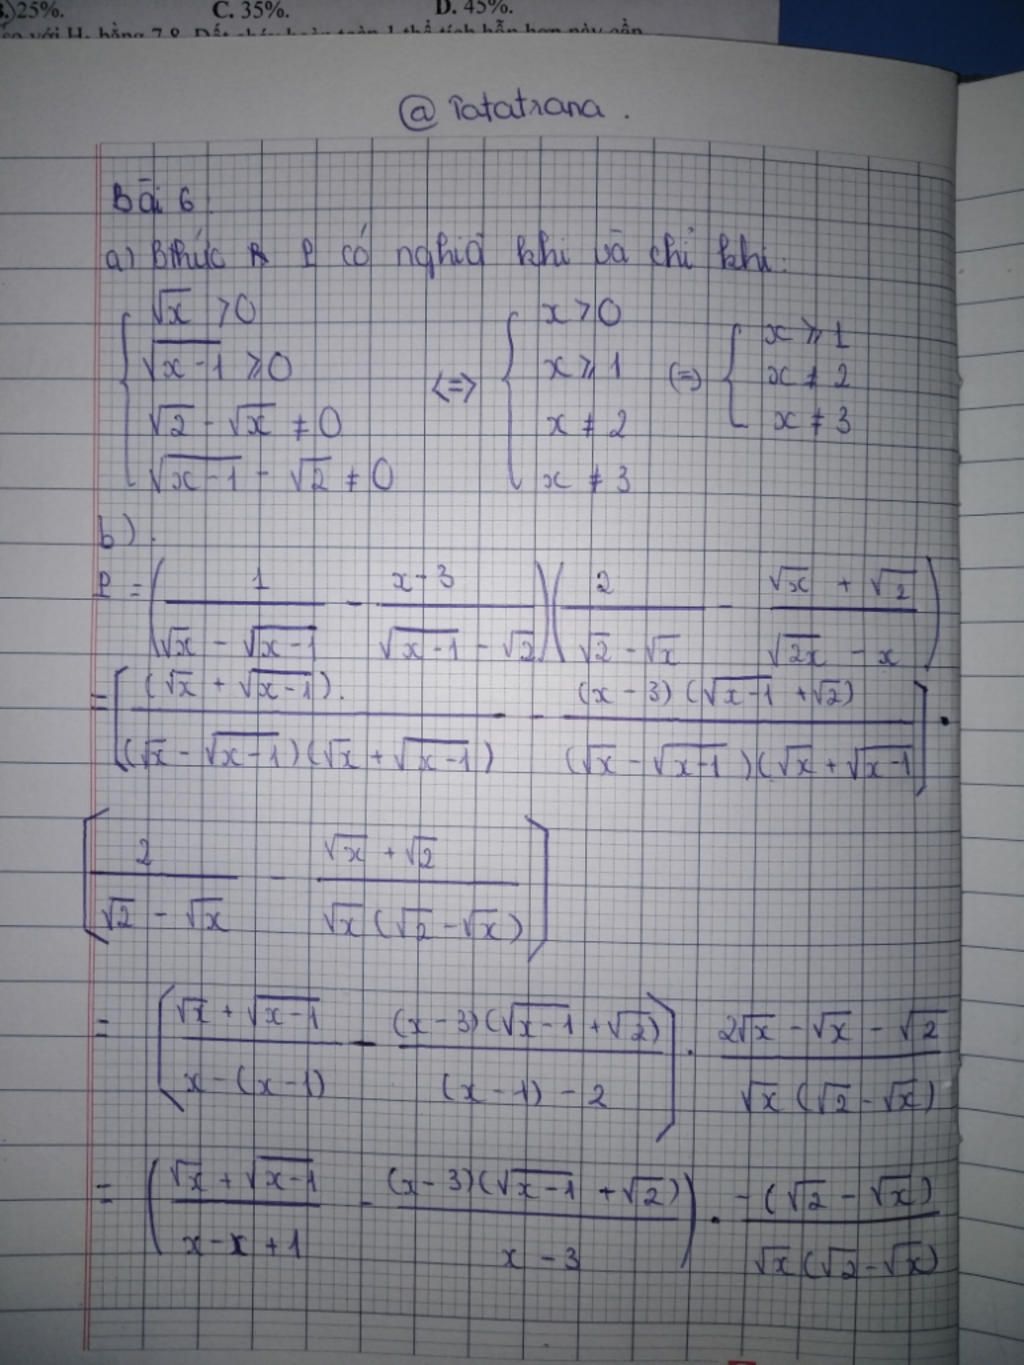 B.)25%. C. 35%. D. 45%.
@ Tatatrana.
Bài 6
a) Bthức P có nghĩa khi và chỉ khi:
{ √x > 0
√(x-1) ⩾ 0
√2 - √x ≠ 0
√(x-1) - √2 ≠ 0
<=> { x > 0
x ⩾ 1
x ≠ 2
x ≠ 3
(=) { x ⩾ 1
x ≠ 2
x ≠ 3
b).
P = (1/(√x - √(x-1)) - (x-3)/(√(x-1) - √2))(2/(√2 - √x) - (√x + √2)/(√(2x) - x))
= [(√x + √(x-1))./((√x - √(x-1))(√x + √(x-1))) - (x-3)(√(x-1) + √2)/((√x - √(x-1))(√x + √(x-1))] .
[2/(√2 - √x) - (√x + √2)/(√x(√2 - √x))]
= [(√x + √(x-1))/(x-(x-1)) - (x-3)(√(x-1) + √2)/((x-1) - 2)] . (2√x - √x - √2)/(√x(√2 - √x))
= ((√x + √(x-1))/(x-x+1) - (x-3)(√(x-1) + √2)/(x-3)) . -(√2 - √x)/(√x(√2 - √x))